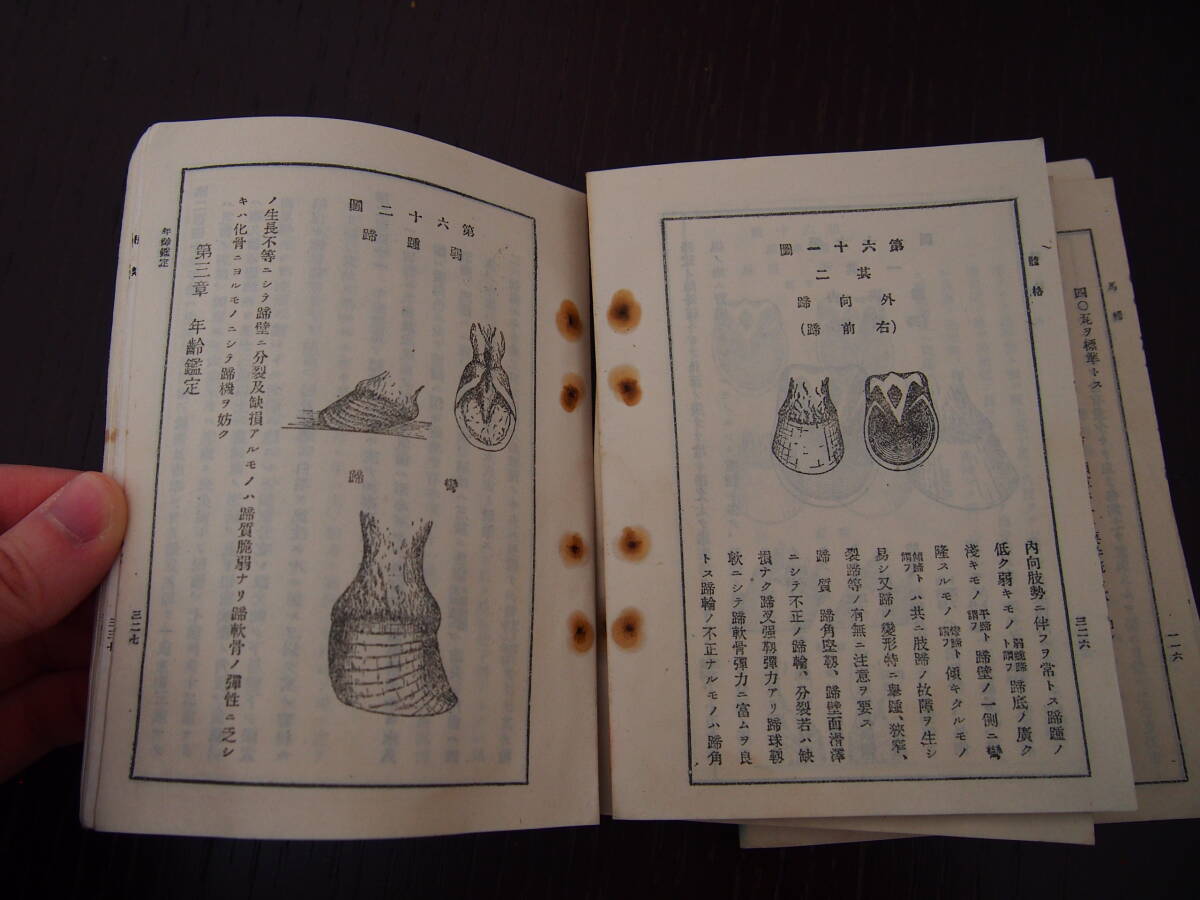 馬
四〇五ヲ標準トス
二一六
體格
第六十一圖
其二
外向蹄
（右前蹄）
內向肢勢ニ伴フヲ常トス蹄踵ノ
低ク弱キモノ弱踵蹄ト謂フ蹄底ノ廣ク
淺キモノ平蹄ト謂フ蹄壁ノ一側ニ彎
隆スルモノ彎蹄ト謂フ傾キタルモノ
傾蹄ト謂フトハ共ニ肢蹄ノ故障ヲ生シ
易シ又蹄ノ變形特ニ擧踵、狹窄、
裂蹄等ノ有無ニ注意ヲ要ス
蹄質 蹄角堅靱、蹄壁面滑澤
ニシテ不正ノ蹄輪、分裂若ハ缺
損ナク蹄叉强靱彈力アリ蹄球靱
軟ニシテ蹄軟骨彈力ニ富ムヲ良
トス蹄輪ノ不正ナルモノハ蹄角
三二六
第六十二圖
弱踵蹄
彎蹄
ノ生長不等ニシテ蹄壁ニ分裂及缺損アルモノハ蹄質脆弱ナリ蹄軟骨ノ彈性ニ乏シ
キハ化骨ニヨルモノニシテ蹄機ヲ妨ク
第三章 年齡鑑定
年齡鑑定
三二七